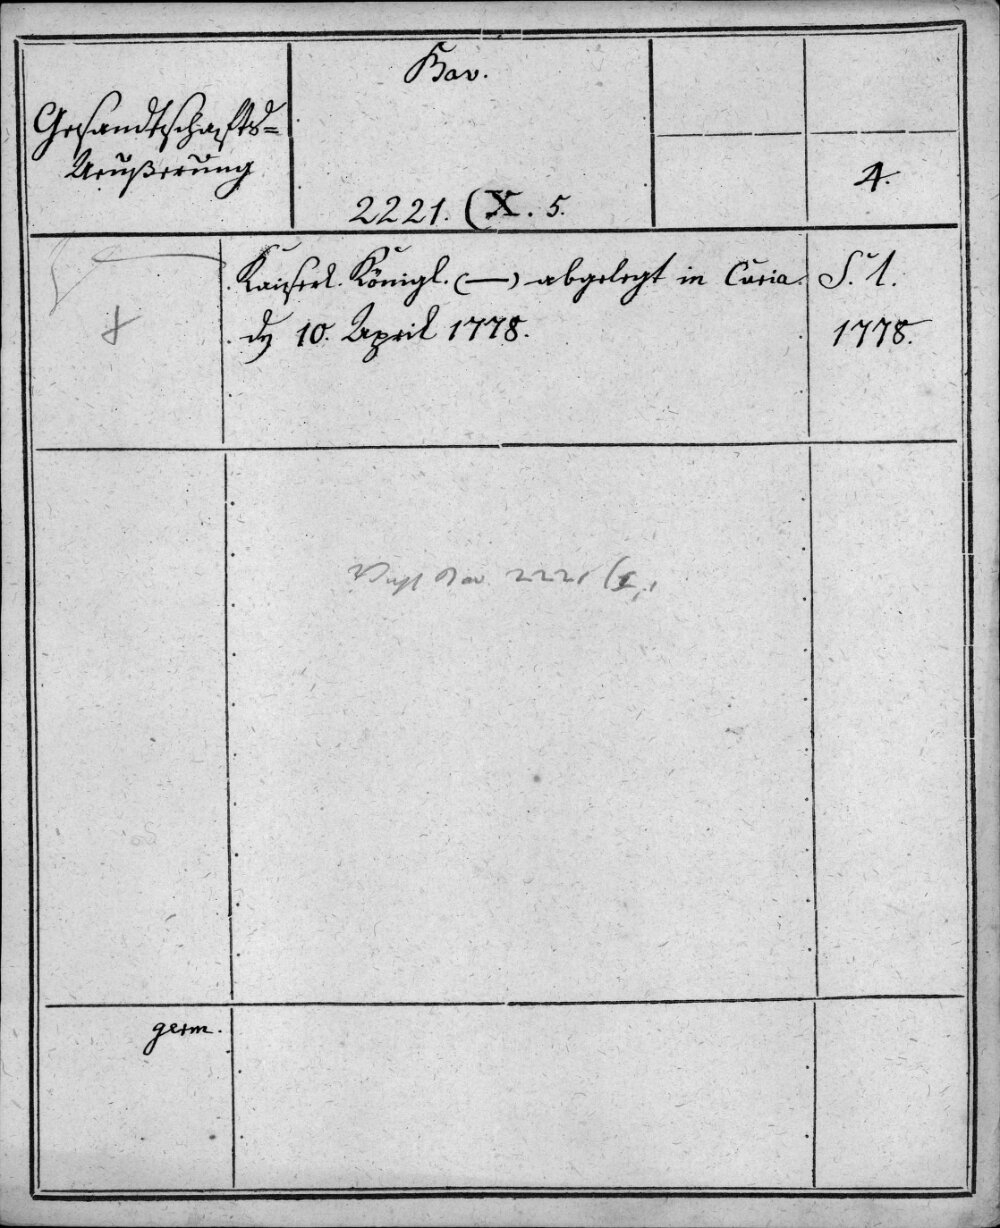 Gesandtschafts=
Aeußerung
Bav.
2221. (X. 5.
4.
Kaiserl. Königl. (—) abgelegt in Curia
dſ 10. April 1778.
S. l.
1778.
Bav. 2221 (X,
germ.